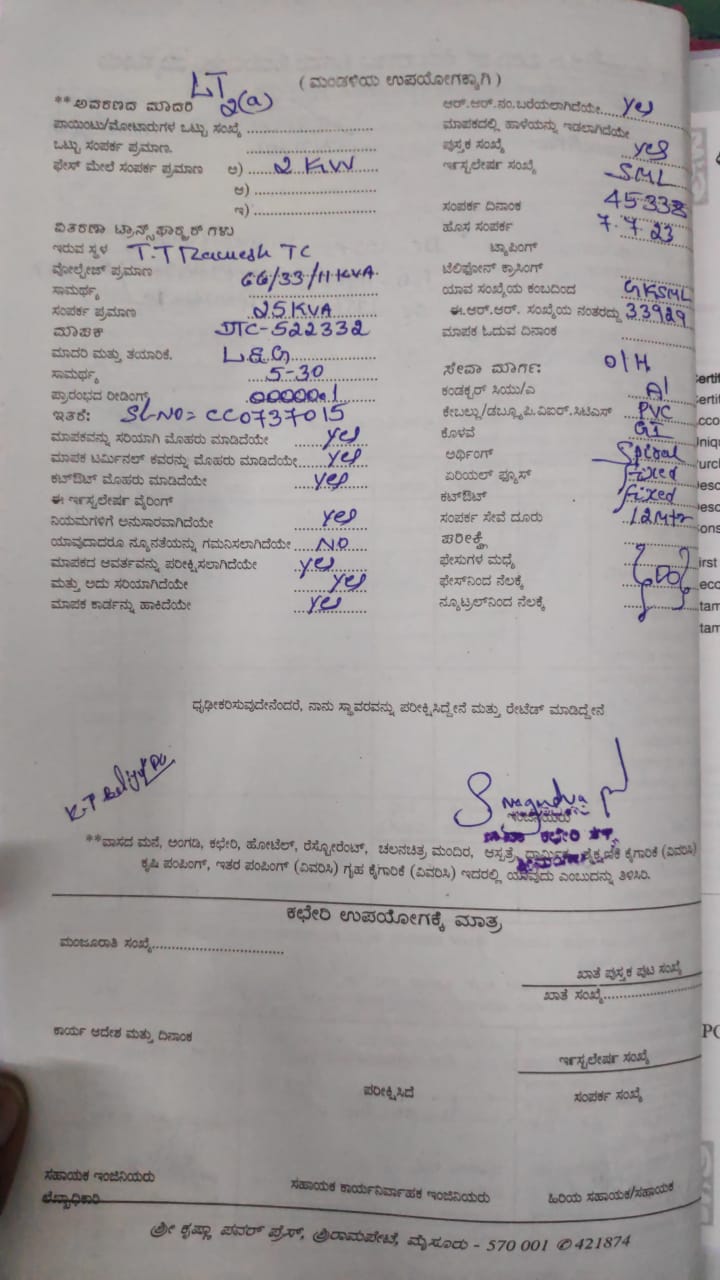 ( ಮಂಡಳಿಯ ಉಪಯೋಗಕ್ಕಾಗಿ )
LT
**ಆವರಣದ ಮಾದರಿ 2(a)
ಪಾಯಿಂಟು/ಮೋಟಾರುಗಳ ಒಟ್ಟು ಸಂಖ್ಯೆ
ಒಟ್ಟು ಸಂಪರ್ಕ ಪ್ರಮಾಣ.
ಫೇಸ್ ಮೇಲೆ ಸಂಪರ್ಕ ಪ್ರಮಾಣ ಅ) 2 KW
ಆ)
ಇ)
ವಿತರಣಾ ಟ್ರಾನ್ಸ್‌ಫಾರ್ಮರ್ ಗಳು
ಇರುವ ಸ್ಥಳ T.T Ramesh TC
ವೋಲ್ಟೇಜ್ ಪ್ರಮಾಣ 66/33/11 KVA.
ಸಾಮರ್ಥ್ಯ
ಸಂಪರ್ಕ ಪ್ರಮಾಣ 25 KVA
ಮಾಪಕ DTC-522332
ಮಾದರಿ ಮತ್ತು ತಯಾರಿಕೆ. L&G
ಸಾಮರ್ಥ್ಯ 5-30
ಪ್ರಾರಂಭದ ರೀಡಿಂಗ್ 00000.1
ಇತರೆ: Sl-No= CC0737015
ಮಾಪಕವನ್ನು ಸರಿಯಾಗಿ ಮೊಹರು ಮಾಡಿದೆಯೇ yes
ಮಾಪಕ ಟರ್ಮಿನಲ್ ಕವರನ್ನು ಮೊಹರು ಮಾಡಿದೆಯೇ yes
ಕಟ್‌ಔಟ್ ಮೊಹರು ಮಾಡಿದೆಯೇ yes
ಈ ಇನ್‌ಸ್ಟಲೇಷನ್ ವೈರಿಂಗ್
ನಿಯಮಗಳಿಗೆ ಅನುಸಾರವಾಗಿದೆಯೇ yes
ಯಾವುದಾದರೂ ನ್ಯೂನತೆಯನ್ನು ಗಮನಿಸಲಾಗಿದೆಯೇ NO
ಮಾಪಕದ ಆವರ್ತವನ್ನು ಪರೀಕ್ಷಿಸಲಾಗಿದೆಯೇ yes
ಮತ್ತು ಅದು ಸರಿಯಾಗಿದೆಯೇ yes
ಮಾಪಕ ಕಾರ್ಡನ್ನು ಹಾಕಿದೆಯೇ yes
ಆರ್.ಆರ್.ನಂ.ಬರೆಯಲಾಗಿದೆಯೇ yes
ಮಾಪಕದಲ್ಲಿ ಹಾಳೆಯನ್ನು ಇಡಲಾಗಿದೆಯೇ
ಪುಸ್ತಕ ಸಂಖ್ಯೆ yes
ಇನ್‌ಸ್ಟಲೇಷನ್ ಸಂಖ್ಯೆ SML
ಸಂಪರ್ಕ ದಿನಾಂಕ 45338
ಹೊಸ ಸಂಪರ್ಕ 7.7.23
ಟ್ಯಾಪಿಂಗ್
ಟೆಲಿಫೋನ್ ಕ್ರಾಸಿಂಗ್
ಯಾವ ಸಂಖ್ಯೆಯ ಕಂಬದಿಂದ GKSML
ಈ.ಆರ್.ಆರ್. ಸಂಖ್ಯೆಯ ನಂತರದ್ದು 33929
ಮಾಪಕ ಓದುವ ದಿನಾಂಕ
ಸೇವಾ ಮಾರ್ಗ: O/H
ಕಂಡಕ್ಟರ್ ಸಿಯು/ಎ Al
ಕೇಬಲ್ಲು/ಡಬ್ಲ್ಯೂ.ಪಿ.ವಿಐರ್.ಸಿಟಿಎಸ್ PVC
ಕೊಳವೆ GI
ಅರ್ಥಿಂಗ್ Spiral
ಏರಿಯಲ್ ಫ್ಯೂಸ್ fixed
ಕಟ್‌ಔಟ್ fixed
ಸಂಪರ್ಕ ಸೇವೆ ದೂರು 12 Mtr
ಪರೀಕ್ಷೆ
ಫೇಸುಗಳ ಮಧ್ಯೆ
ಫೇಸ್‌ನಿಂದ ನೆಲಕ್ಕೆ
ನ್ಯೂಟ್ರಲ್‌ನಿಂದ ನೆಲಕ್ಕೆ
ಧೃಢೀಕರಿಸುವುದೇನೆಂದರೆ, ನಾನು ಸ್ಥಾವರವನ್ನು ಪರೀಕ್ಷಿಸಿದ್ದೇನೆ ಮತ್ತು ರೇಟೆಡ್ ಮಾಡಿದ್ದೇನೆ
**ವಾಸದ ಮನೆ, ಅಂಗಡಿ, ಕಛೇರಿ, ಹೋಟೆಲ್, ರೆಸ್ಟೋರೆಂಟ್, ಚಲನಚಿತ್ರ ಮಂದಿರ, ಆಸ್ಪತ್ರೆ, ಕೈಗಾರಿಕೆ (ವಿವರಿಸಿ)
ಕೃಷಿ ಪಂಪಿಂಗ್, ಇತರ ಪಂಪಿಂಗ್ (ವಿವರಿಸಿ) ಗೃಹ ಕೈಗಾರಿಕೆ (ವಿವರಿಸಿ) ಇದರಲ್ಲಿ ಯಾವುದು ಎಂಬುದನ್ನು ತಿಳಿಸಿರಿ.
ಕಛೇರಿ ಉಪಯೋಗಕ್ಕೆ ಮಾತ್ರ
ಮಂಜೂರಾತಿ ಸಂಖ್ಯೆ
ಖಾತೆ ಪುಸ್ತಕ ಪುಟ ಸಂಖ್ಯೆ
ಖಾತೆ ಸಂಖ್ಯೆ
ಕಾರ್ಯ ಆದೇಶ ಮತ್ತು ದಿನಾಂಕ
ಇನ್‌ಸ್ಟಲೇಷನ್ ಸಂಖ್ಯೆ
ಪರೀಕ್ಷಿಸಿದೆ
ಸಂಪರ್ಕ ಸಂಖ್ಯೆ
ಸಹಾಯಕ ಇಂಜಿನಿಯರು
ಲೆಖ್ಖಾಧಿಕಾರಿ
ಸಹಾಯಕ ಕಾರ್ಯನಿರ್ವಾಹಕ ಇಂಜಿನಿಯರು
ಹಿರಿಯ ಸಹಾಯಕ/ಸಹಾಯಕ
ಶ್ರೀ ಕೃಷ್ಣಾ ಪವರ್ ಪ್ರೆಸ್, ಶ್ರೀರಾಮಪೇಟೆ, ಮೈಸೂರು - 570 001 ✆ 421874